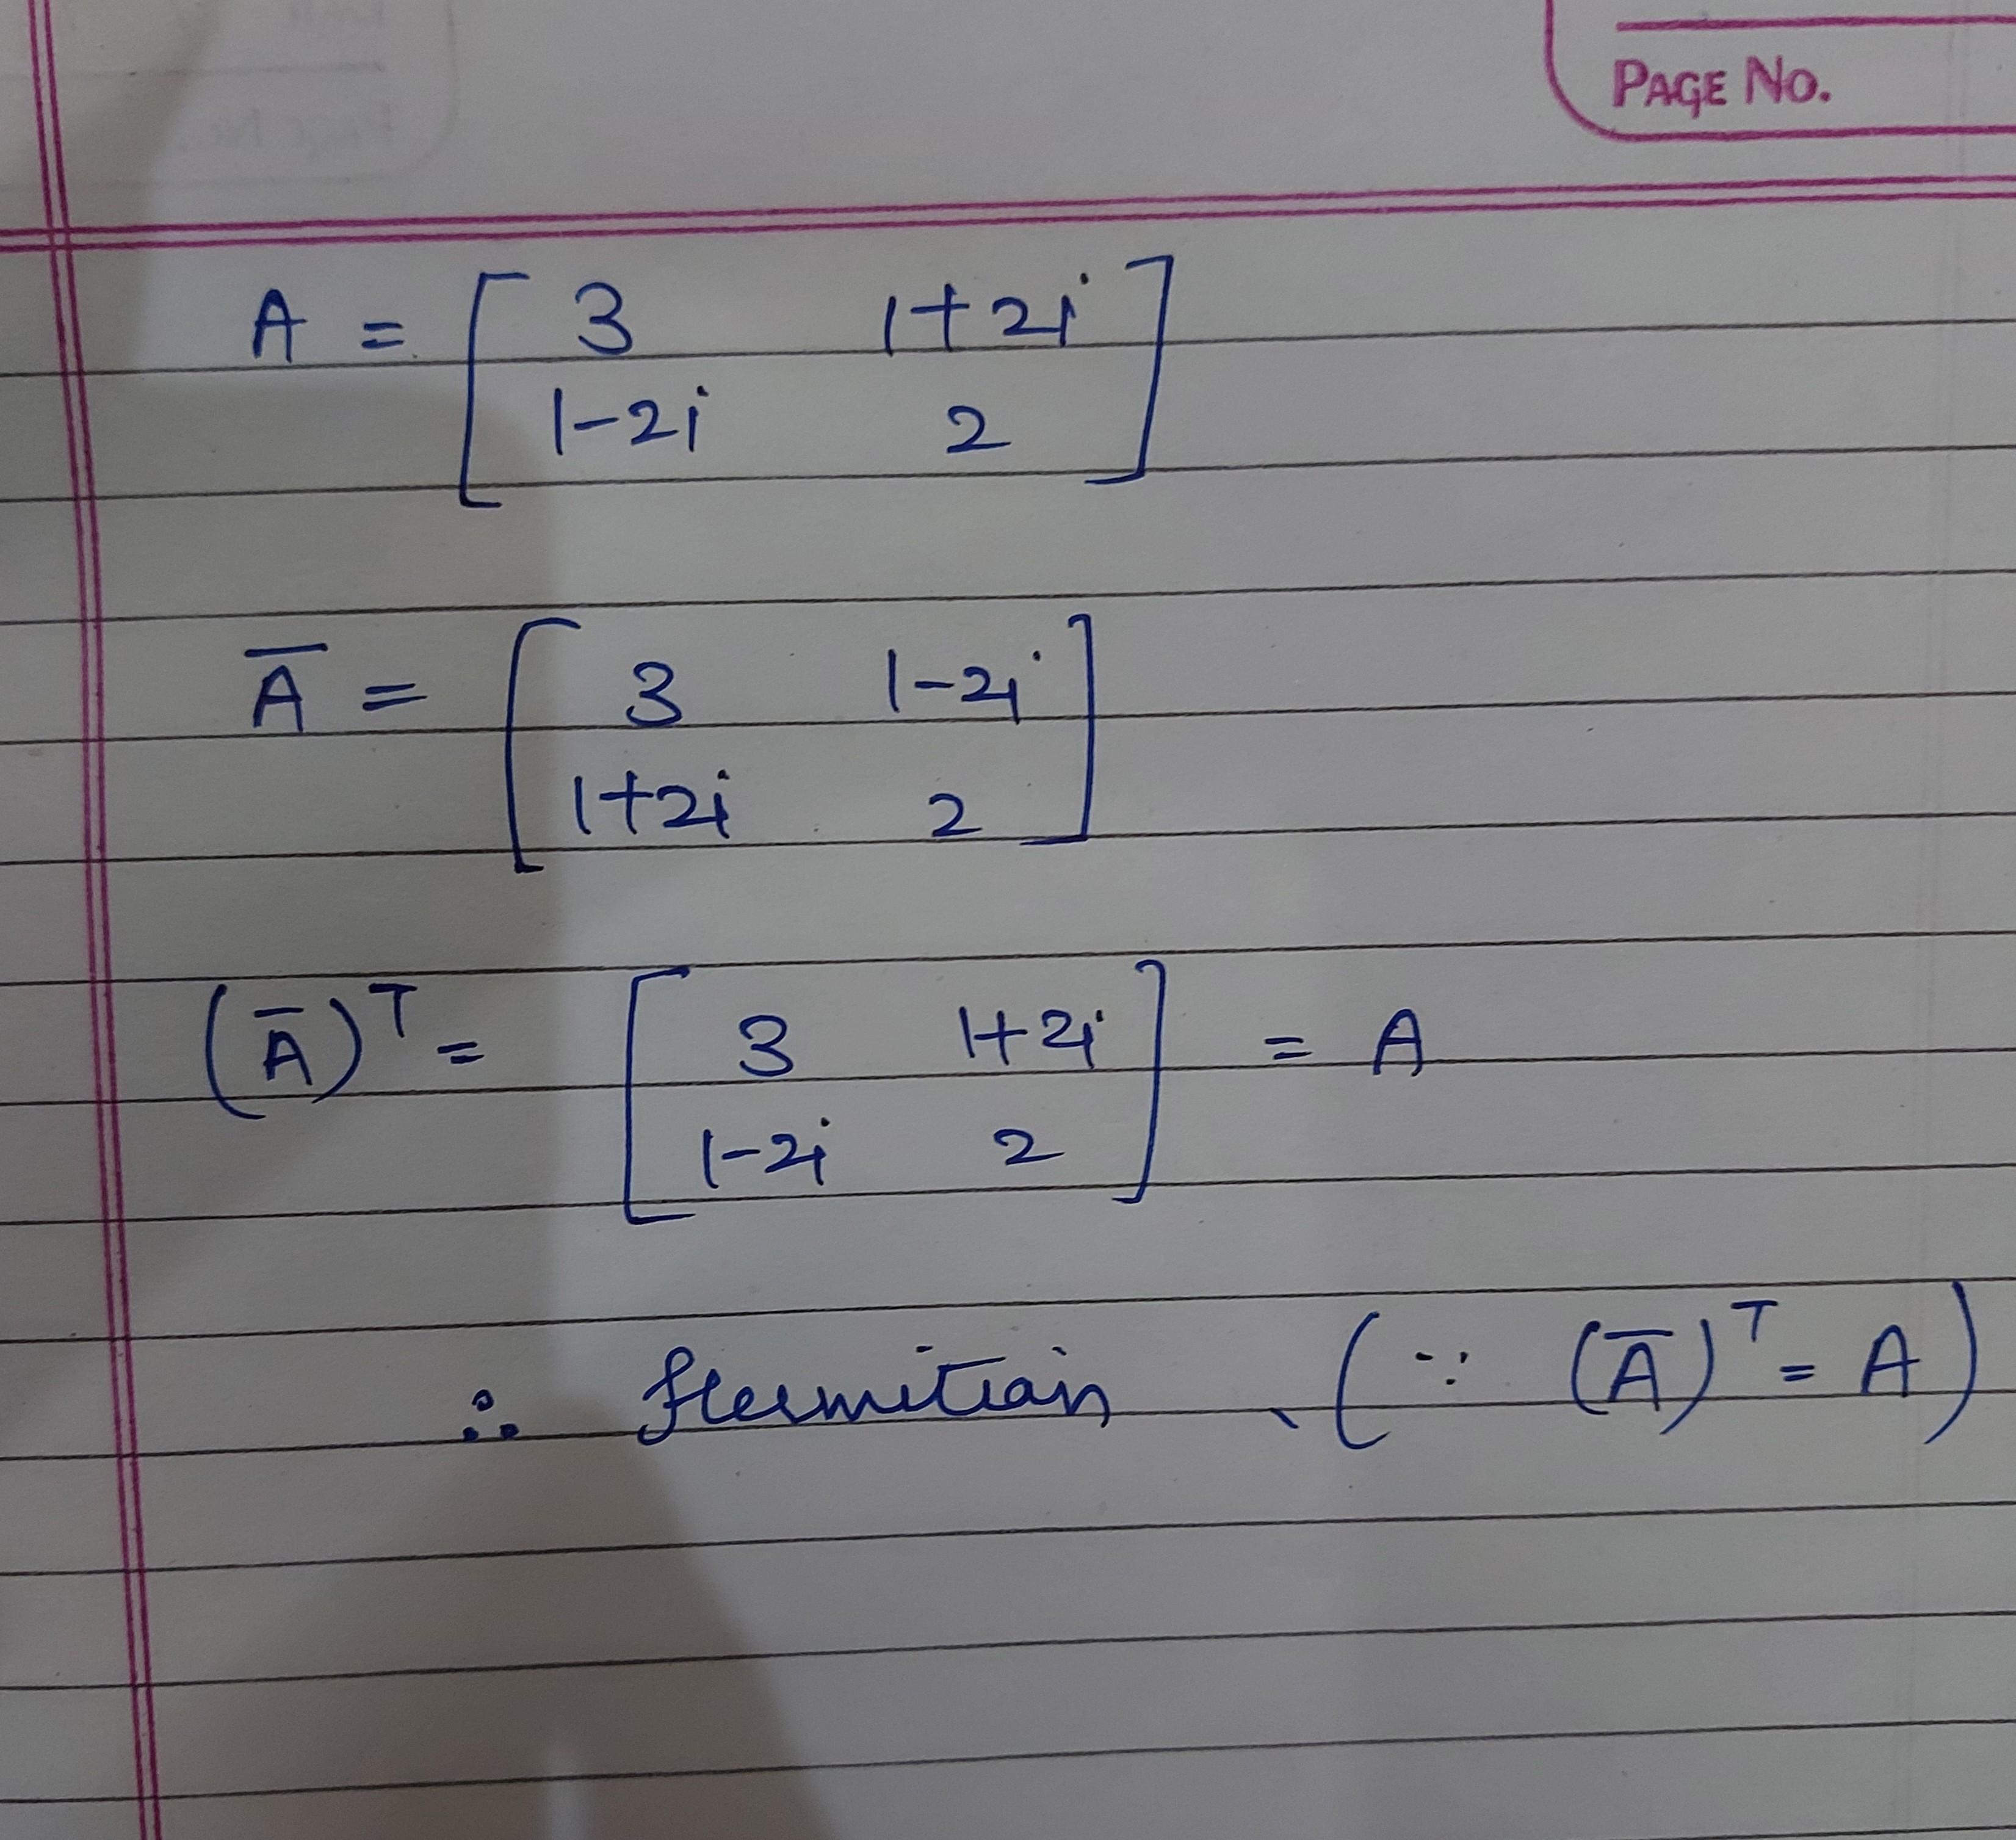 PAGE NO.
A = [ 3 1+2i
1-2i 2 ]
A̅ = [ 3 1-2i
1+2i 2 ]
(A̅)ᵀ = [ 3 1+2i
1-2i 2 ] = A
∴ Hermitian. (∵ (A̅)ᵀ = A)